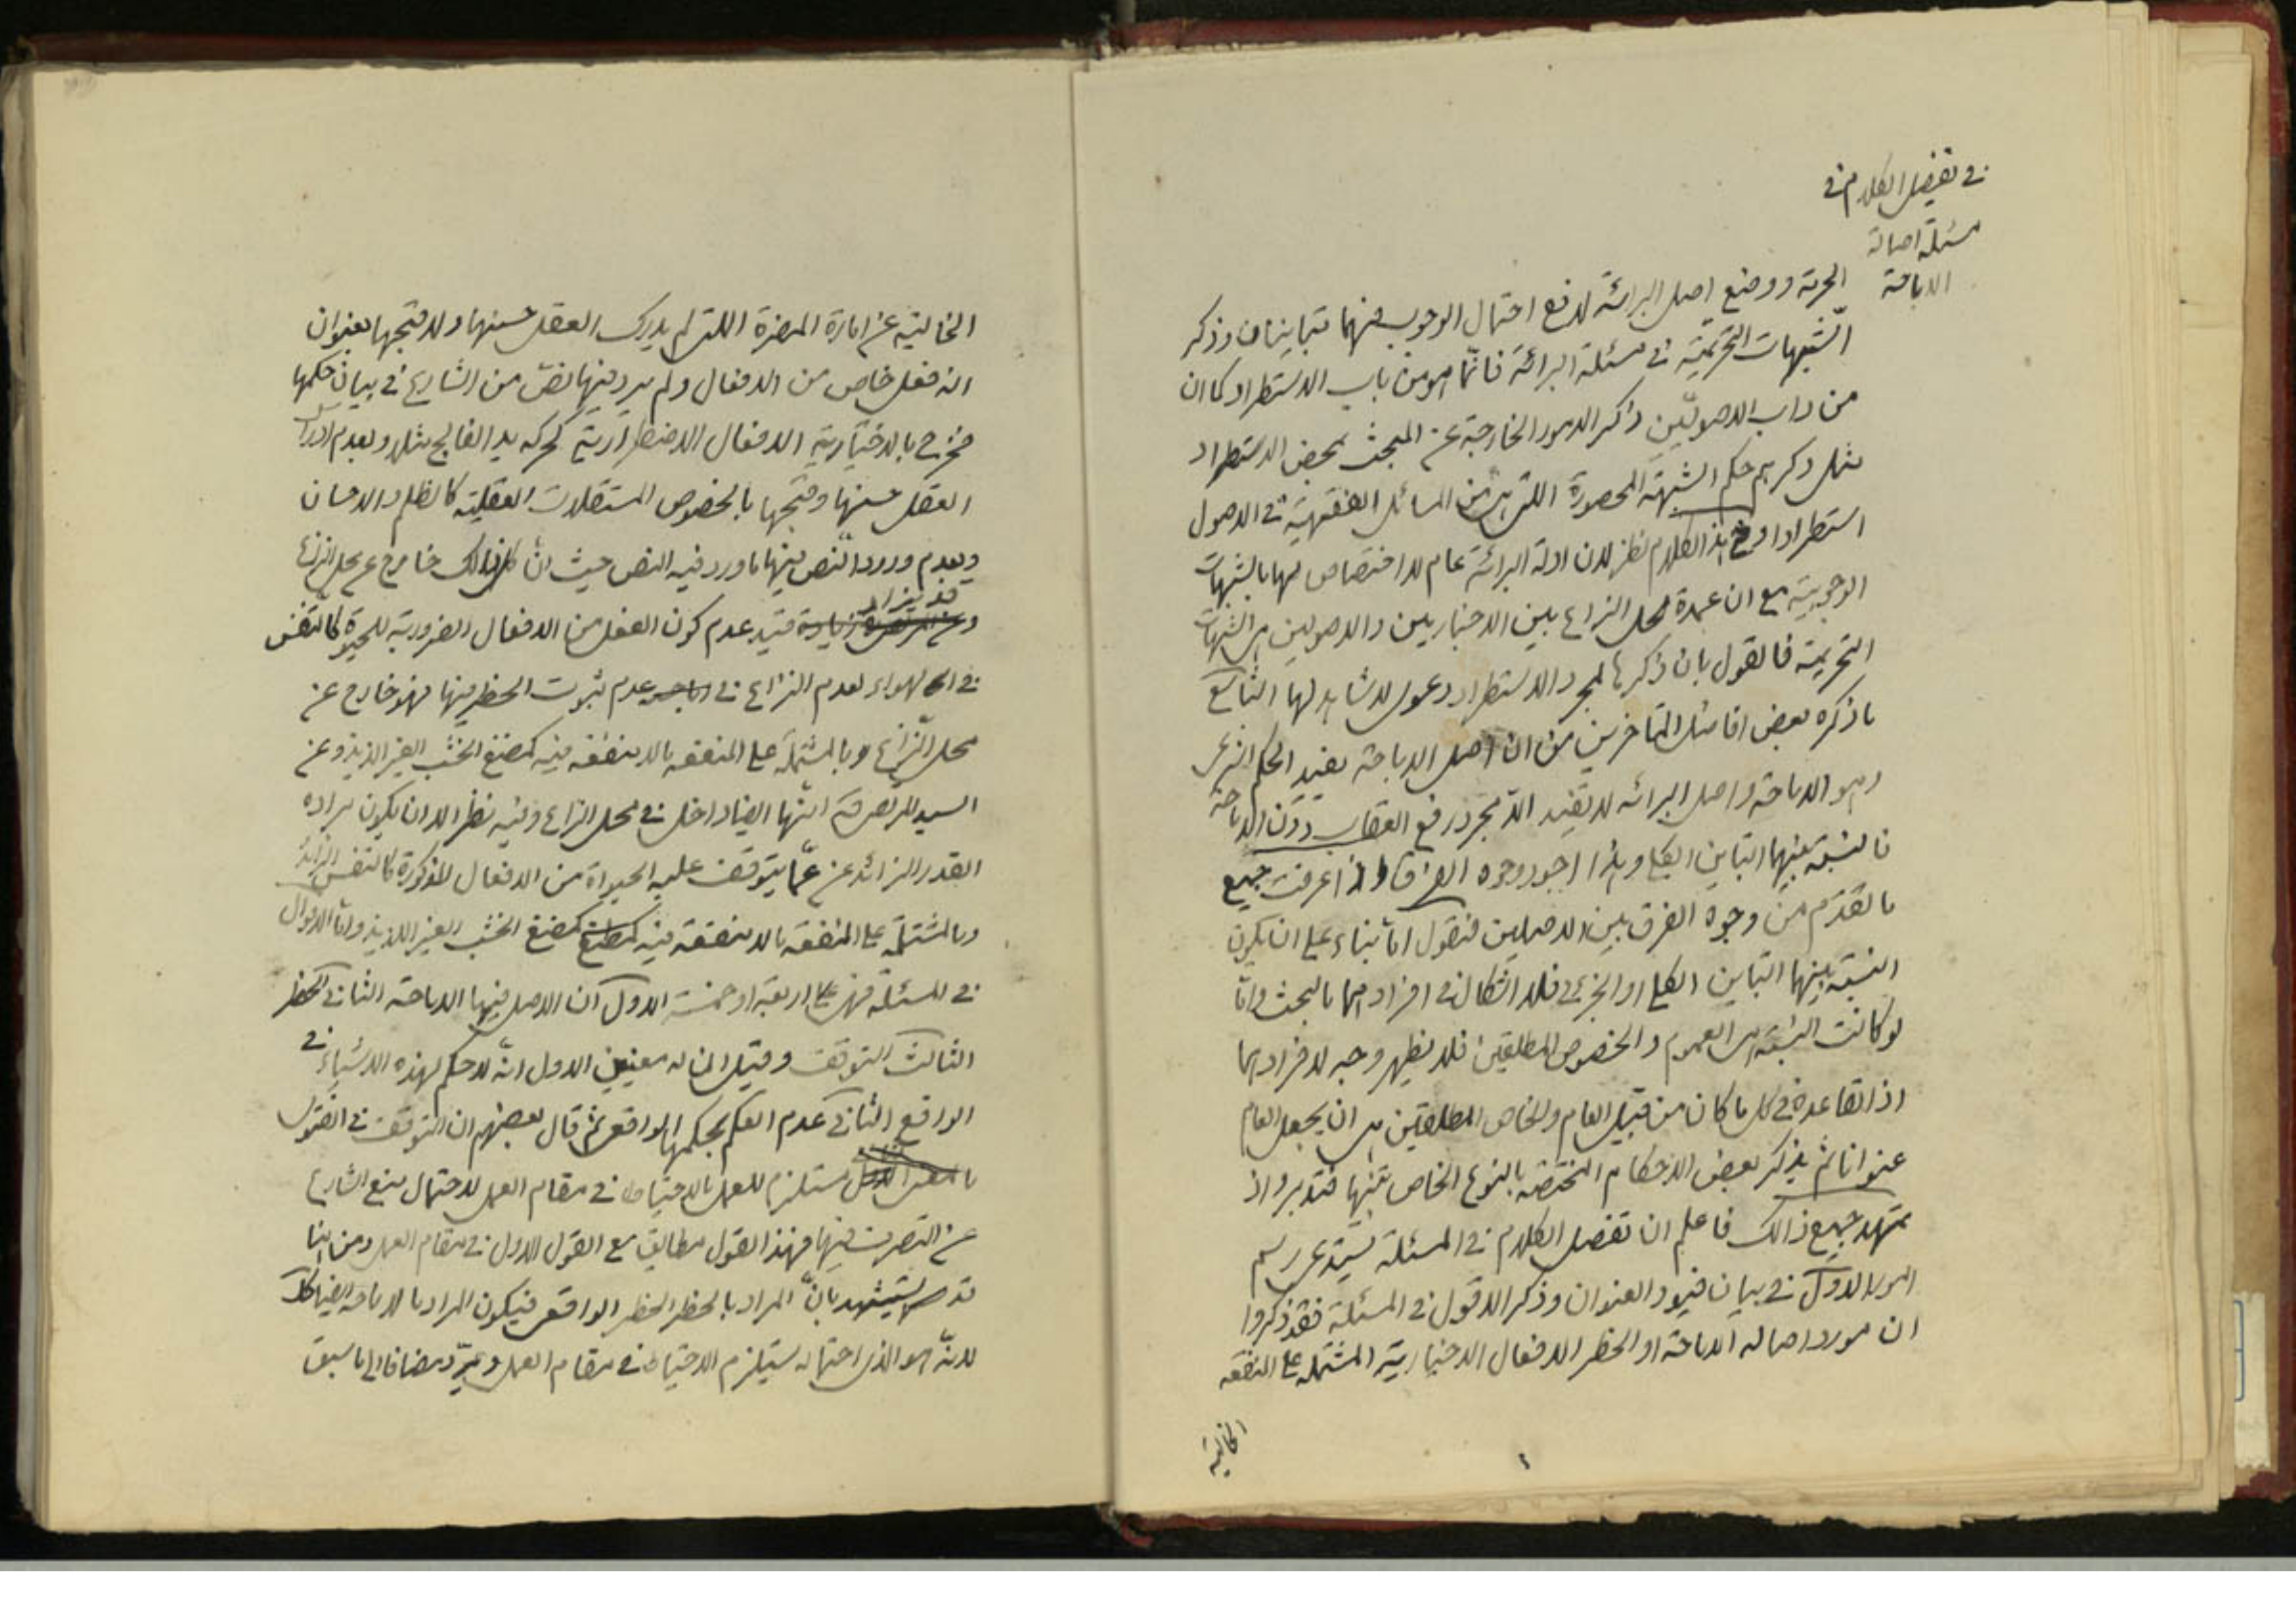 في تفصيل الكلام في
مسئلة اصالة
الاباحة
الحرمة ووضع اصل البرائة لدفع احتمال الوجوب فهما متباينان وذكر
الشبهات التحريمية في مسئلة البرائة فانما هو من باب الاستطراد كما ان
من داب الاصوليين ذكر الامور الخارجة عن المبحث بمحض الاستطراد
مثل ذكرهم حكم الشبهة المحصورة اللتي هي من المسائل الفقهية في الاصول
استطرادا وفي هذا الكلام نظر لان ادلة البرائة عام لا اختصاص لها بالشبهات
الوجوبية مع ان عمدة محل النزاع بين الاخباريين والاصوليين هي الشبهات
التحريمية فالقول بان ذكرها لمجرد الاستطراد دعوى لا شاهد لها التاسع
ما ذكره بعض افاضل المتاخرين من ان اصل الاباحة يفيد الحكم الشرعي
وهو الاباحة واصل البرائه لا يفيد الا مجرد رفع العقاب دون الاباحة
فالنسبة بينهما التباين الكلي وهذا اجود وجوه الفرق واذا عرفت جميع
ما تقدم من وجوه الفرق بين الاصلين فنقول اما بناء على ان يكون
النسبة بينهما التباين الكلي او الجزئي فلا اشكال في افرادهما بالبحث واما
لو كانت النسبة هي العموم والخصوص المطلقين فلا يظهر وجه لافرادهما
اذ القاعدة في كل ما كان من قبيل العام والخاص المطلقين هي ان يجعل العام
عنوانا ثم يذكر بعض الاحكام المختصة بالنوع الخاص منها فتدبر واذ
تمهد جميع ذالك فاعلم ان تفصيل الكلام في المسئلة يستدعي رسم
امور الاول في بيان قيود العنوان وذكر الاقول في المسئلة فقد ذكروا
ان مورد اصاله الاباحة او الحظر الافعال الاختيارية المشتملة على المنفعه
الخالية
الخالية عن امارة المضرة اللتي لم يدرك العقل حسنها ولا قبحها بعنوان
انه فعل خاص من الافعال ولم يرد فيها نص من الشارع في بيان حكمها
فخرج بالاختيارية الافعال الاضطرارية كحركه يد الفالج مثلا وبعدم ادراك
العقل حسنها وقبحها بالخصوص المستقلات العقلية كالظلم والاحسان
وبعدم ورود النص فيها ما ورد فيه النص حيث ان كل ذالك خارج عن محل النزاع
قد يزاد
قيد عدم كون الفعل من الافعال الضرورية للحيوة كالتنفس
في الهواء لعدم النزاع في عدم ثبوت الحظر فيها فهو خارج عن
محل النزاع وبالمشتملة على المنفعه ما لا منفعة فيه كمضغ الخشب الغير اللذيذ وعن
السيد المرتضى انها ايضا داخل في محل النزاع وفيه نظر الا ان يكون مراده
القدر الزائد عن عما يتوقف عليه الحيواة من الافعال المذكورة كالتنفس الزائد
وبالمشتملة على المنفعة ما لا منفعة فيه كمضغ الخشب الغير اللذيذ واما الاقوال
في المسئلة فهي على اربعة او خمسة الاول ان الاصل فيها الاباحة الثاني الحظر
الثالث التوقف وقيل ان له معنيين الاول انه لا حكم لهذه الاشياء في
الواقع الثاني عدم العلم بحكمها الواقعي ثم قال بعضهم ان التوقف في الفتوى
يستلزم للعمل بالاحتياط في مقام العمل لاحتمال منع الشارع
عن التصرف فيها فهذا القول مطابق مع القول الاول في مقام العمل ومن هنا
قد يستشهد بان المراد بالحظر الحظر الواقعي فيكون المراد بالاباحة ايضا كك
لانه هو الذي احتماله يستلزم الاحتياط في مقام العمل مضافا الى ما سبق